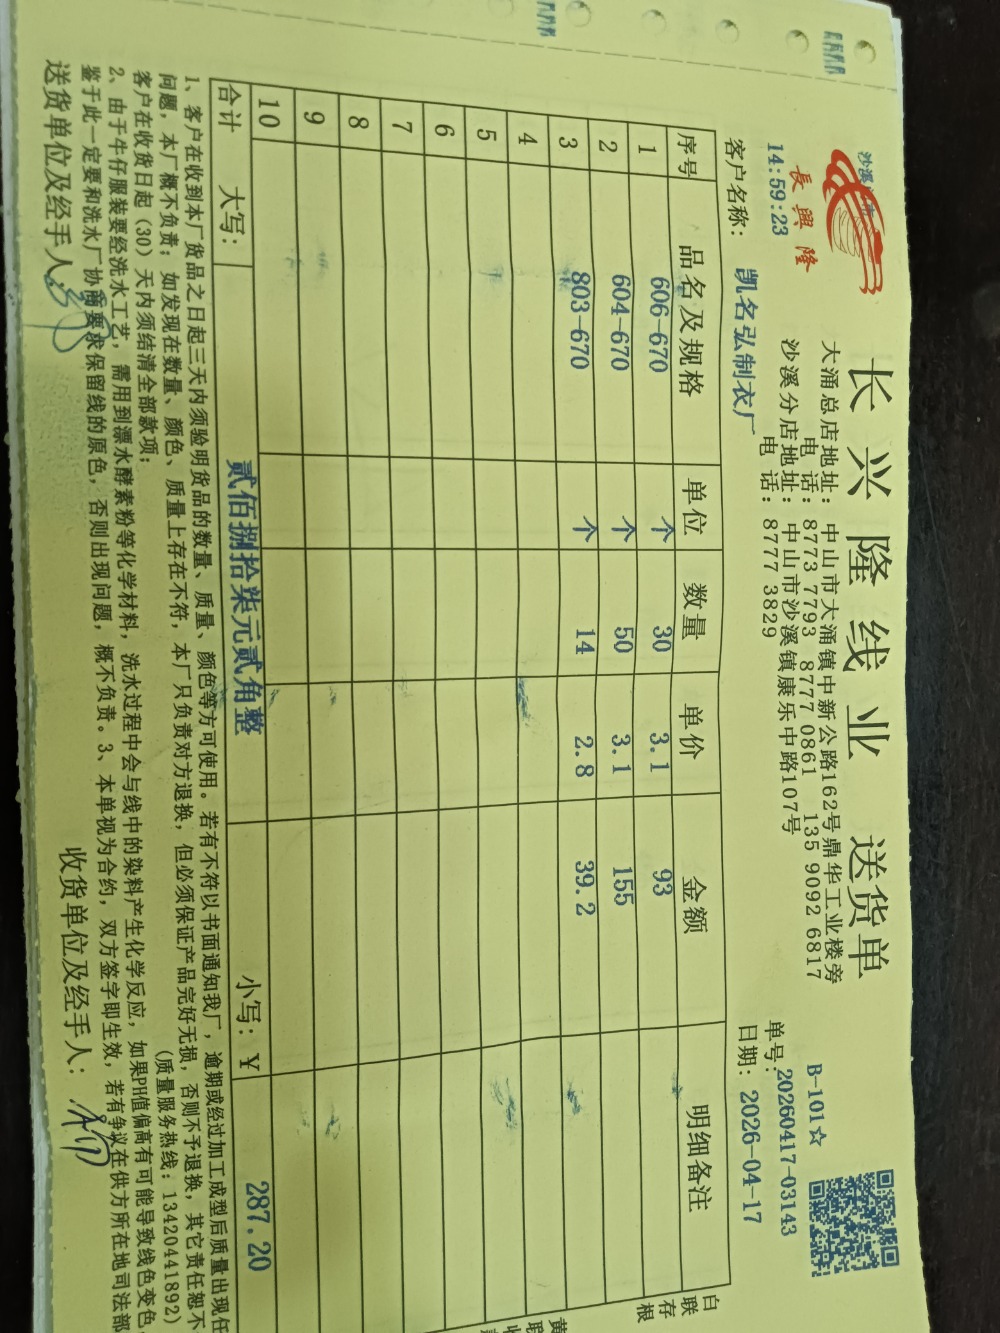 長興隆
长兴隆线业 送货单
B-101☆
大涌总店地址：中山市大涌镇中新公路162号鼎华工业楼旁
电 话：8773 7793 8777 0861 135 9092 6817
沙溪分店地址：中山市沙溪镇康乐中路107号
电 话：8777 3829
14:59:23
单号：20260417-03143
客户名称：凯名弘制衣厂
日期：2026-04-17
序号 品名及规格 单位 数量 单价 金额 明细备注
1 606-670 个 30 3.1 93
2 604-670 个 50 3.1 155
3 803-670 个 14 2.8 39.2
4
5
6
7
8
9
10
合计 大写：贰佰捌拾柒元贰角整 小写：￥ 287.20
白联存根
1、客户在收到本厂货品之日起三天内须验明货品的数量、质量、颜色等方可使用。若有不符以书面通知我厂，逾期或经过加工成型后质量出现任
问题，本厂概不负责；如发现在数量、颜色、质量上存在不符，本厂只负责对方退换，但必须保证产品完好无损，否则不予退换，其它责任恕不
客户在收货日起（30）天内须结清全部款项；
（质量服务热线：13420441892）
2、由于牛仔服装要经洗水工艺，需用到漂水酵素粉等化学材料，洗水过程中会与线中的染料产生化学反应，如果PH值偏高有可能导致线色变色，
鉴于此一定要和洗水厂协商要求保留线的原色，否则出现问题，概不负责。3、本单视为合约，双方签字即生效，若有争议在供方所在地司法部
送货单位及经手人：
收货单位及经手人：